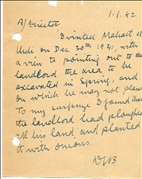 1.1.42
A/Director
I visited Mahait el
Urdi on Dec 30th 1941, with
a view to pointing out to the
landlord the area to be
excavated in Spring, and
on which he may not plant.
To my surprise I found that
the landlord had ploughed
all his land and planted
it with onions.